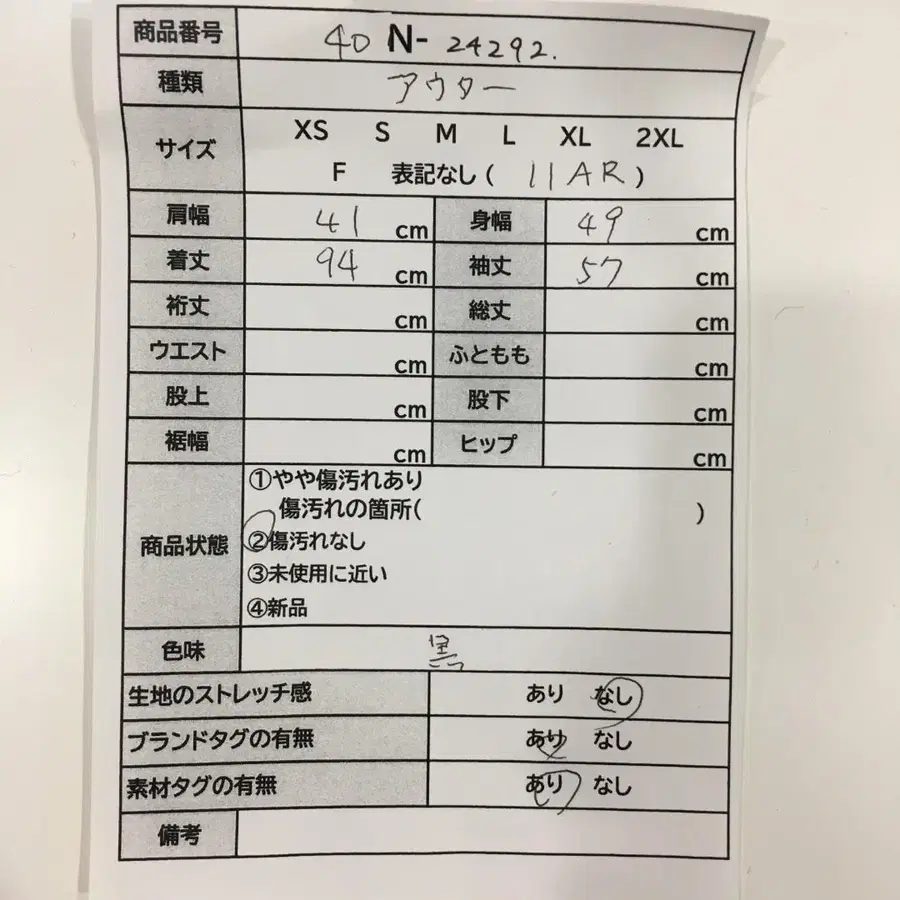 商品番号 40 N- 24292.
種類 アウター
サイズ XS S M L XL 2XL
F 表記なし( 11AR )
肩幅 41 cm 身幅 49 cm
着丈 94 cm 袖丈 57 cm
裄丈 cm 総丈 cm
ウエスト cm ふともも cm
股上 cm 股下 cm
裾幅 cm ヒップ cm
商品状態 ①やや傷汚れあり
傷汚れの箇所( )
②傷汚れなし
③未使用に近い
④新品
色味 黒
生地のストレッチ感 あり なし
ブランドタグの有無 あり なし
素材タグの有無 あり なし
備考